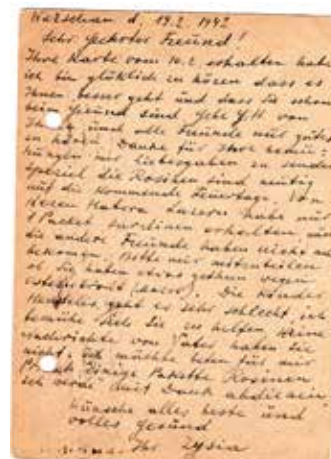 Warschau d. 19.2. 1942
Sehr geehrter Freund!
Ihre Karte vom 10.2. erhalten habe
ich bin glücklich zu hören dass es
Ihnen besser geht und dass Sie schon
beim Freund sind. Gebe G.H. von
Ihnen und alle Freunde nur gutes
zu hören. Danke für Ihre
mir Liebesgaben zu senden
speziell die Rosinen sind nöttig
auf die kommende Feuertage. Von
Herrn habe nur
1 Packet Sardinen erhalten, und
die andere Freunde haben nicht
bekomen. Bitte mir mitzuteilen
ob Sie haben etwas gethan wegen
Die Kinder
geht es sehr schlecht, ich
bemühe mich Sie zu helfen. Keine
Nachrichte vom Vater haben Sie
nicht. Ich möchte beten für mir
einige Pakette Rosinen
ich werde mit Dank
Wünsche alles beste und
volles gesund
Ihr Zysia